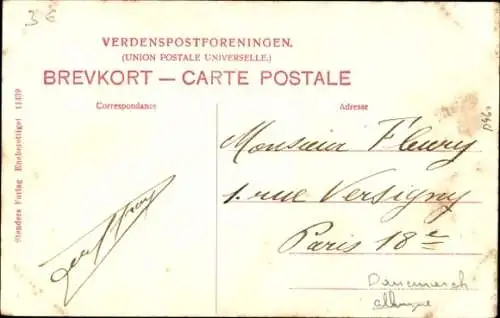 3 €
VERDENSPOSTFORENINGEN.
(UNION POSTALE UNIVERSELLE.)
BREVKORT — CARTE POSTALE
Correspondance
Adresse
Stenders Forlag Eneberettiget 11439
Monsieur Fleury
1. rue Versigny
Paris 18e
Danemarck